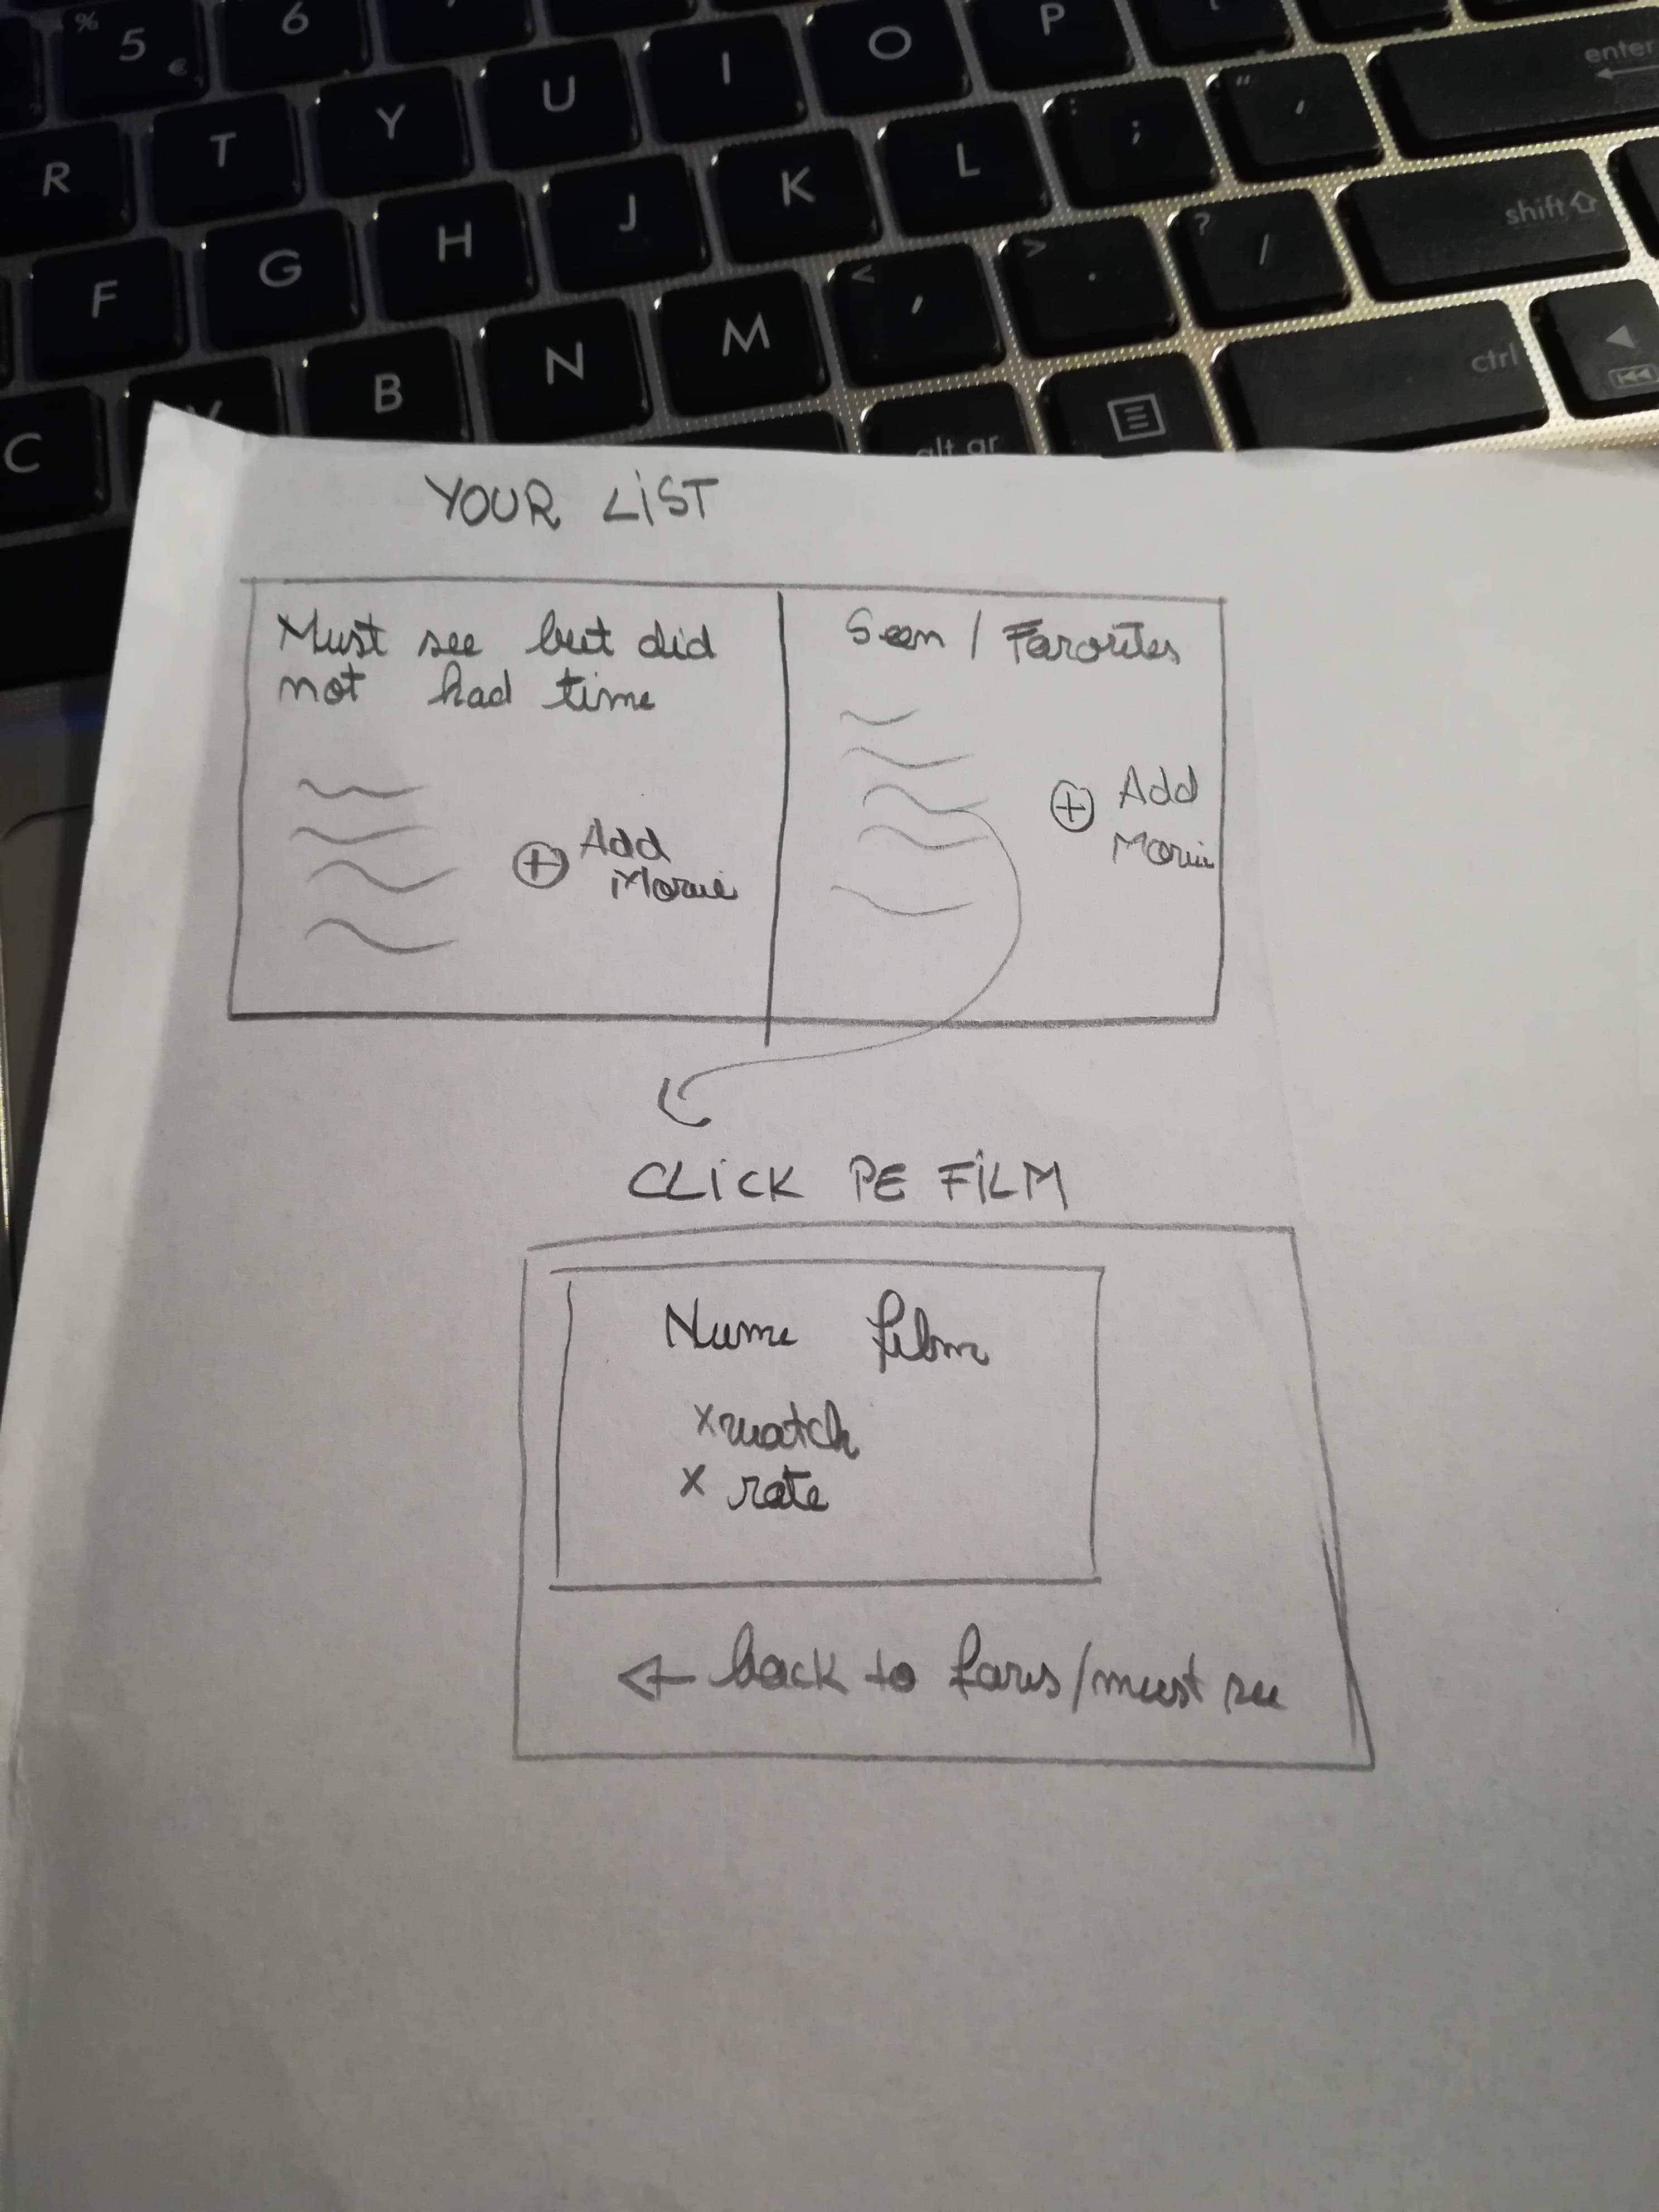 % 5 €
6
R T Y U I O P
F G H J K L : ; " ' enter
C V B N M < , > . ? / shift
alt gr ctrl
YOUR LIST
Must see but did
not had time
Add
Movie
Seen / Favorites
Add
Movie
CLICK PE FILM
Nume film
x watch
x rate
back to favs/must see